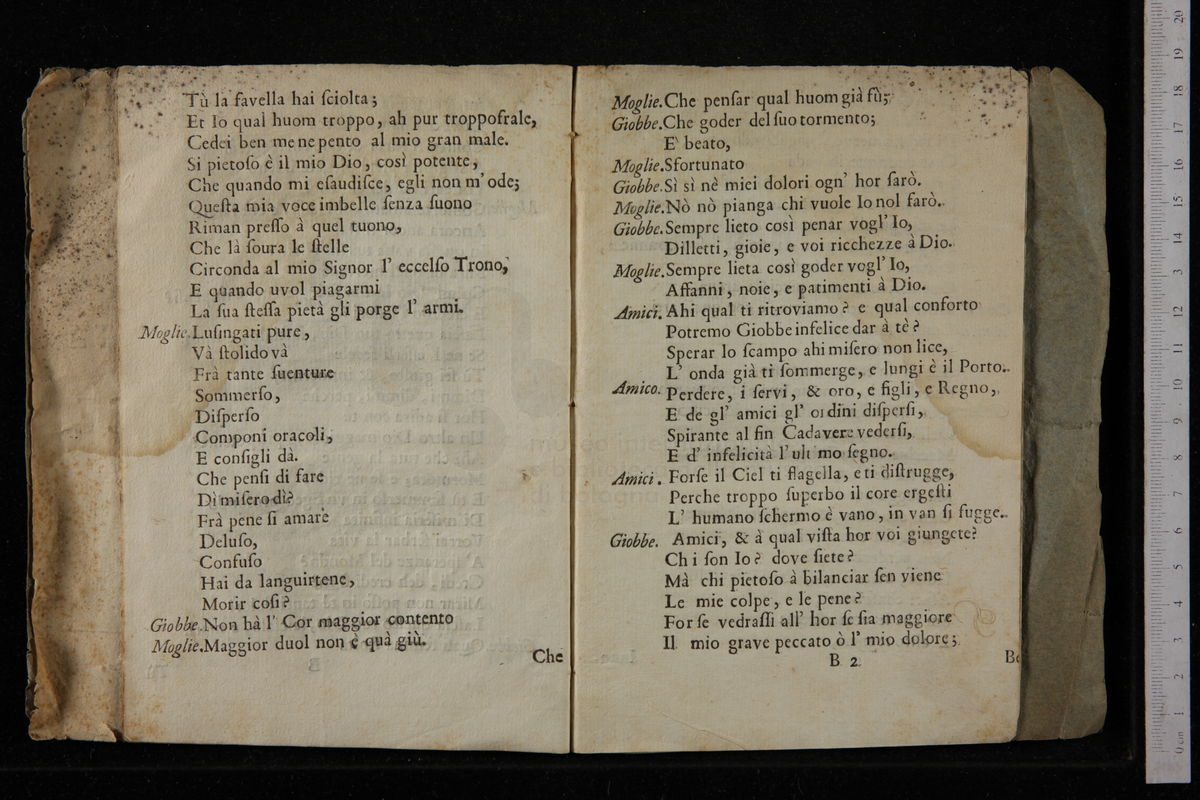 Tù la favella hai ſciolta;
Et Io qual huom troppo, ah pur troppofrale,
Cedei ben me ne pento al mio gran male.
Si pietoſo è il mio Dio, così potente,
Che quando mi eſaudiſce, egli non m'ode;
Queſta mia voce imbelle ſenza ſuono
Riman preſſo à quel tuono,
Che là ſoura le ſtelle
Circonda al mio Signor l' eccelſo Trono;
E quando uvol piagarmi
La ſua ſteſſa pietà gli porge l' armi.
Moglie. Luſingati pure,
Và ſtolido và
Frà tante ſuenture
Sommerſo,
Diſperſo
Componi oracoli,
E conſigli dà.
Che penſi di fare
Dì miſero dì?
Frà pene ſi amare
Deluſo,
Confuſo
Hai da languirtene,
Morir coſi?
Giobbe. Non hà l' Cor maggior contento
Moglie. Maggior duol non è quà giù.
Che
Moglie. Che penſar qual huom già fù;
Giobbe. Che goder del ſuo tormento;
E' beato,
Moglie. Sfortunato
Giobbe. Sì sì nè miei dolori ogn' hor ſarò.
Moglie. Nò nò pianga chi vuole Io nol farò.
Giobbe. Sempre lieto così penar vogl' Io,
Dilletti, gioie, e voi ricchezze à Dio.
Moglie. Sempre lieta così goder vogl' Io,
Affanni, noie, e patimenti à Dio.
Amici. Ahi qual ti ritroviamo? e qual conforto
Potremo Giobbe infelice dar à tè?
Sperar lo ſcampo ahi miſero non lice,
L' onda già ti ſommerge, e lungi è il Porto.
Amico. Perdere, i ſervi, & oro, e figli, e Regno,
E de gl' amici gl' ordini diſperſi,
Spirante al fin Cadavere vederſi,
E d' infelicità l' ultimo ſegno.
Amici. Forſe il Ciel ti flagella, e ti diſtrugge,
Perche troppo ſuperbo il core ergeſti
L' humano ſchermo è vano, in van ſi fugge.
Giobbe. Amici, & à qual viſta hor voi giungete?
Chi ſon Io? dove ſiete?
Mà chi pietoſo à bilanciar ſen viene
Le mie colpe, e le pene?
Forſe vedraſſi all' hor ſe ſia maggiore
Il mio grave peccato ò l' mio dolore;
B 2